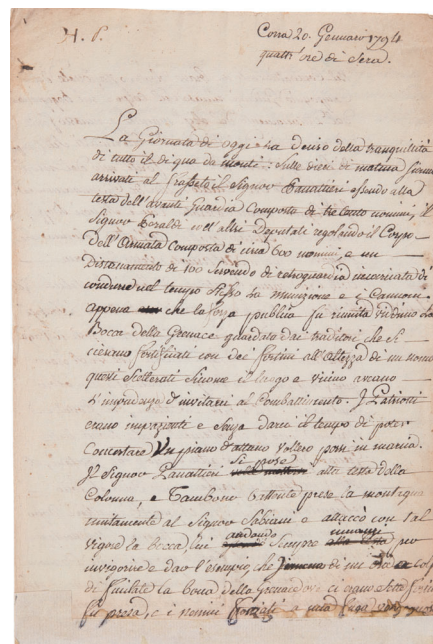 H. P.
Corra 20. Gennaro 1794
quattr'ore di Sera.
La Giornata di oggi ha deciso della tranquilità
di tutto il di qua da monti: Sulle dieci di matina siamo
arrivati al Frasseto il Signor Panattieri essendo alla
testa dell'avanti Guardia Composta di tre Cento uomini, il
Signor Geraldi ed altri Deputati regolando il Corpo
dell'Armata Composta di circa 600 uomini, e un
Distaccamento di 100 Servendo di retroguardia incaricata di
condurre nel tempo stesso la munizione e i Cannoni
appena che la forza publica fu riunita vidimo la
Bocca della Grenace guardata dai traditori che si
cierano fortificati con dei fortini all'altezza di un uomo
questi Scelerati Sicome il luogo e vicino avevano
l'impudenza d'invitarci al Combattimento. I Patriotti
erano impazienti e senza darci il tempo di poter
Concertare Un piano d'attacco Vollero porsi in marcia.
Il Signor Panattieri si pose alla testa della
Colonna, e Tamburo battente prese la montagna
unitamente al Signor Fabiani e attaccò con tal
vigore la bocca, lui andando Sempre innanzi per
inspirare e dar l'esempio, che di mille colpi
di fucilate la bocca della Grenace dove ci erano Sette fortini
fu presa, e i nemici forzati a una fuga